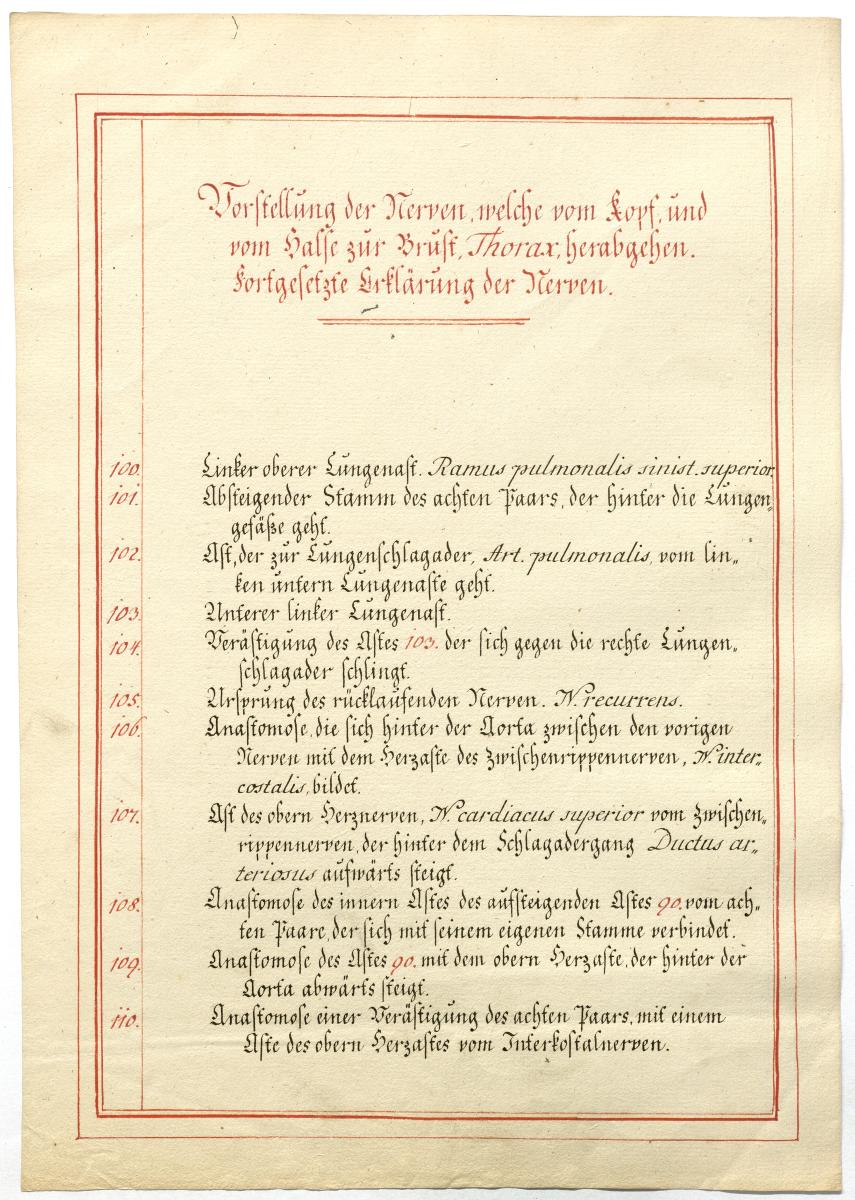 Vorstellung der Nerven, welche vom Kopf, und
vom Halse zur Brust, Thorax, herabgehen.
Fortgesetzte Erklärung der Nerven.
100. Linker oberer Lungenast. Ramus pulmonalis sinist. superior.
101. Absteigender Stamm des achten Paars, der hinter die Lungen-
gefäße geht.
102. Ast, der zur Lungenschlagader, Art. pulmonalis, vom lin-
ken untern Lungenaste geht.
103. Unterer linker Lungenast.
104. Verästigung des Astes 103. der sich gegen die rechte Lungen-
schlagader schlingt.
105. Ursprung des rücklaufenden Nerven. N. recurrens.
106. Anastomose, die sich hinter der Aorta zwischen den vorigen
Nerven mit dem Herzaste des Zwischenrippennerven, N. inter-
costalis, bildet.
107. Ast des obern Herznerven, N. cardiacus superior vom Zwischen-
rippennerven, der hinter dem Schlagadergang Ductus ar-
teriosus aufwärts steigt.
108. Anastomose des innern Astes des aufsteigenden Astes 90. vom ach-
ten Paare, der sich mit seinem eigenen Stamme verbindet.
109. Anastomose des Astes 90. mit dem obern Herzaste, der hinter der
Aorta abwärts steigt.
110. Anastomose einer Verästigung des achten Paars, mit einem
Aste des obern Herzastes vom Interkostalnerven.